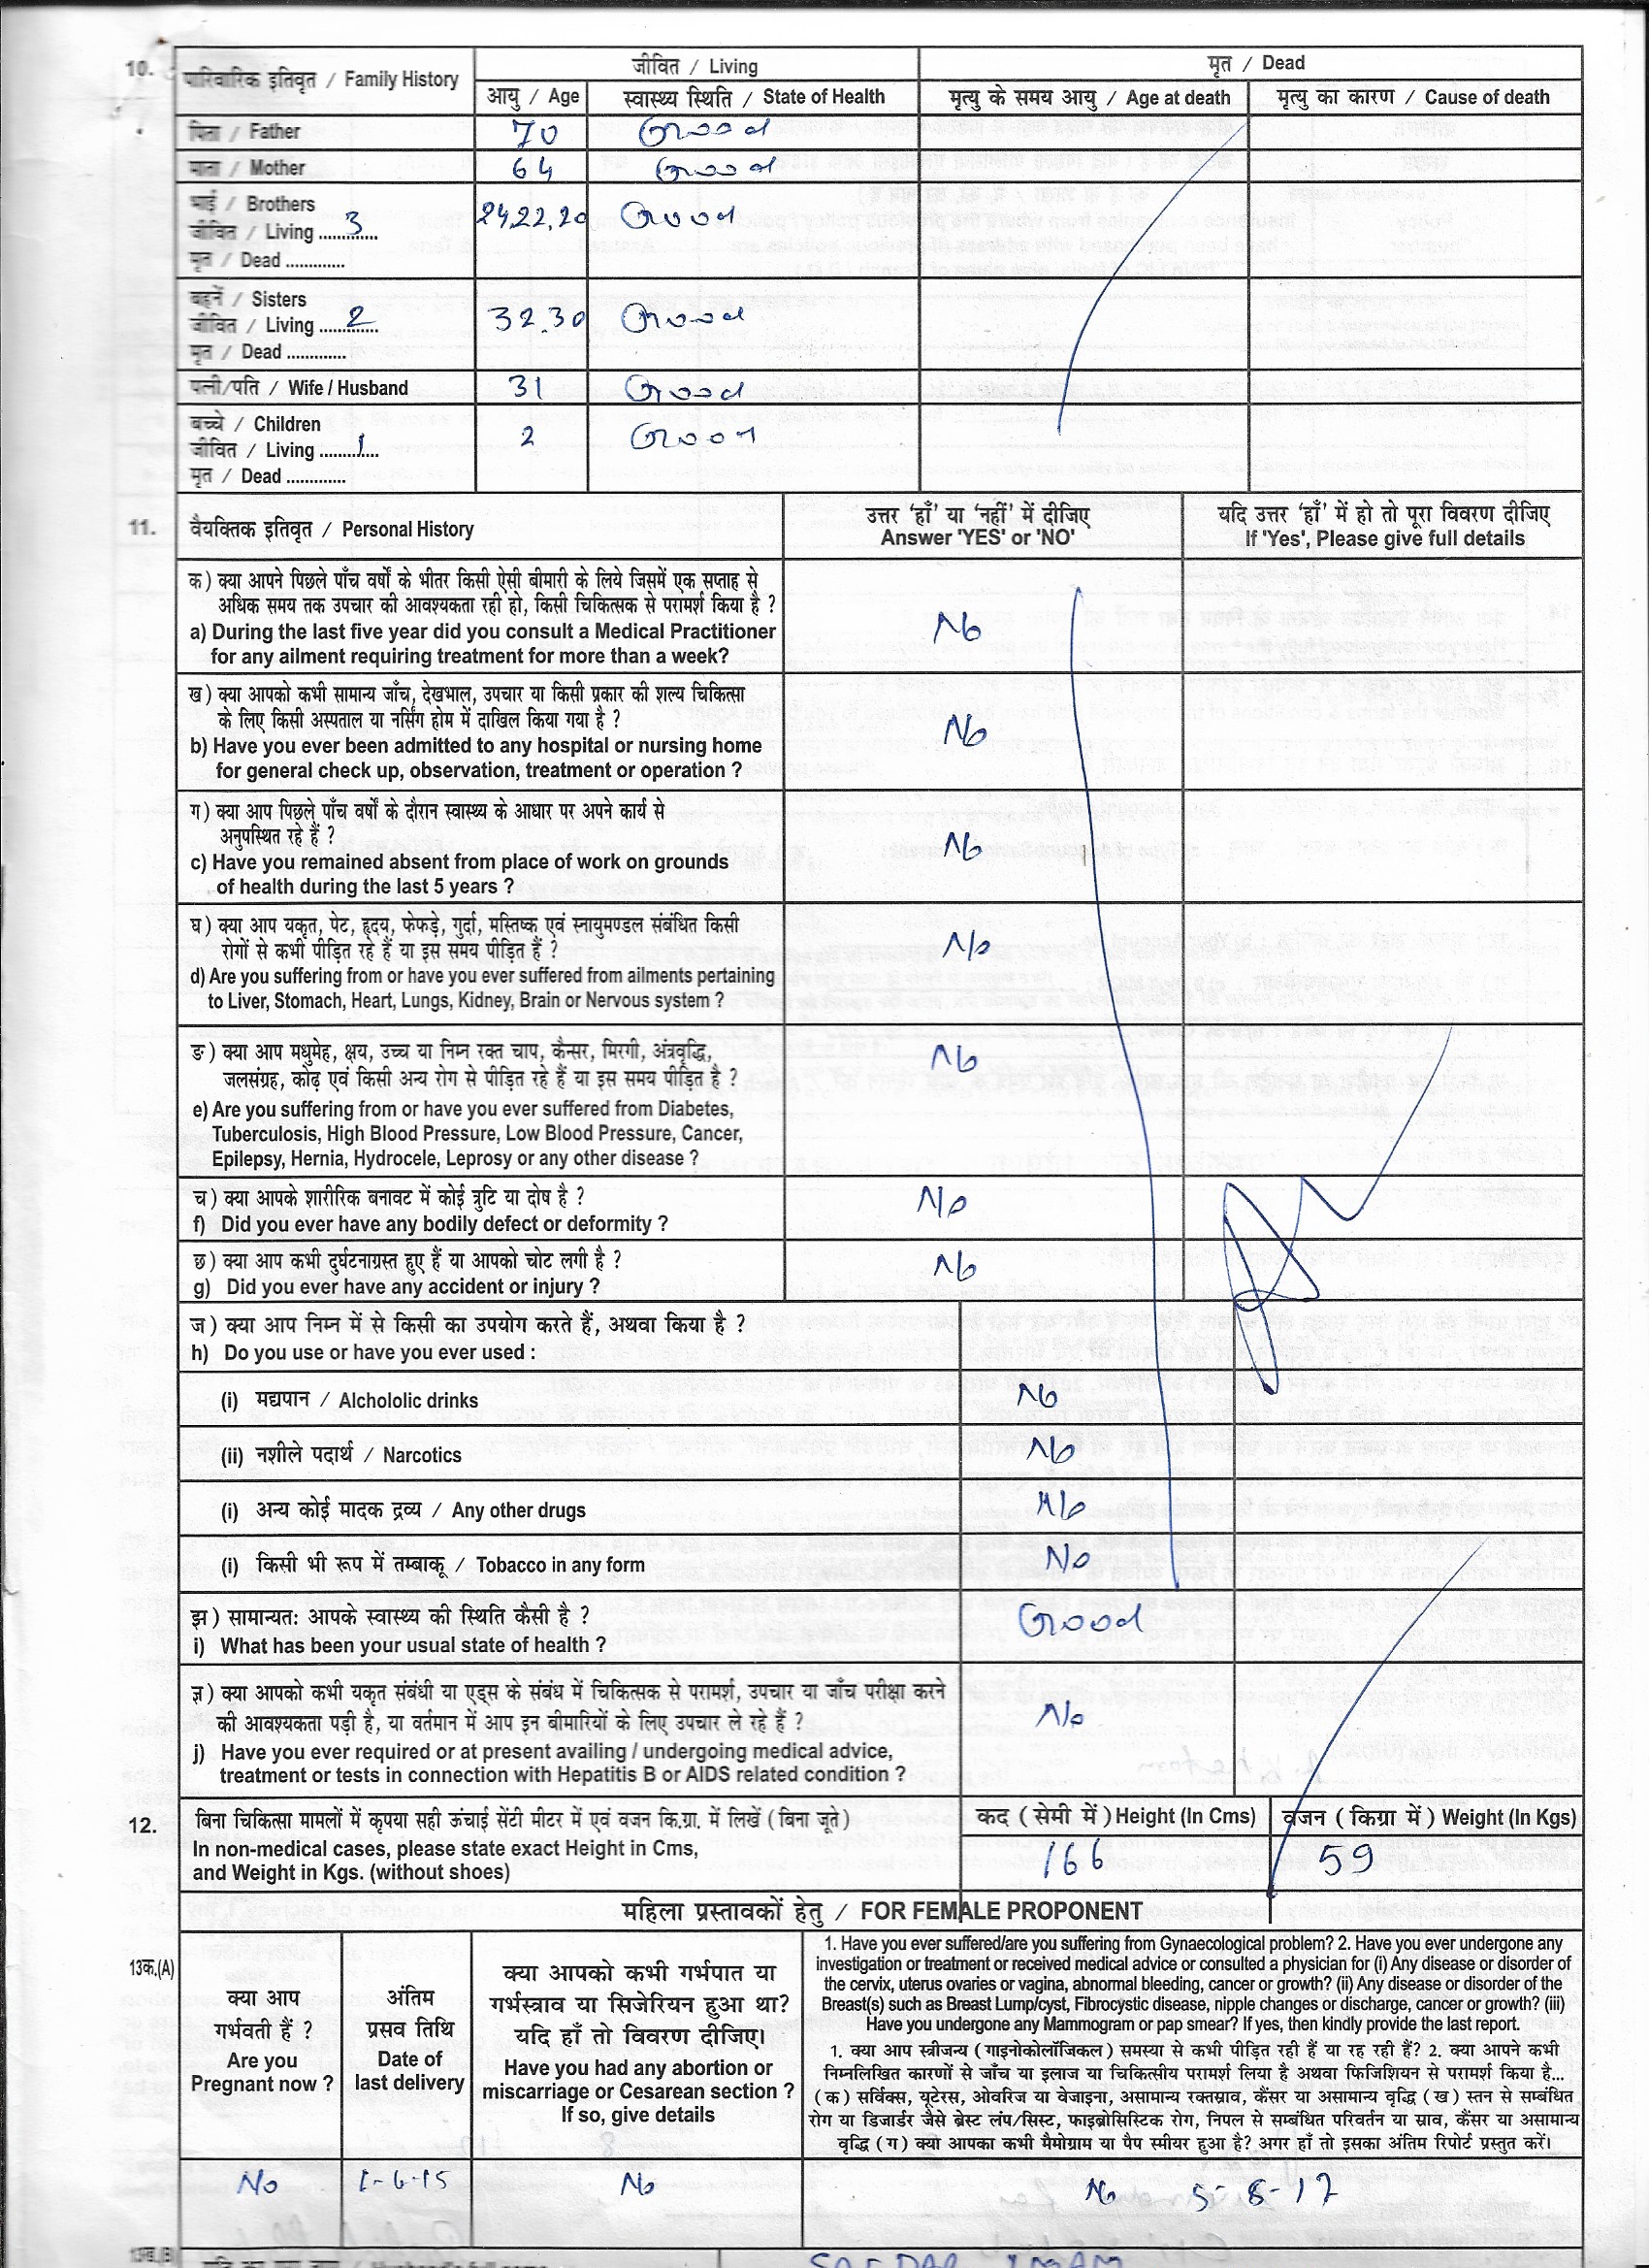 10. पारिवारिक इतिवृत / Family History
जीवित / Living
मृत / Dead
आयु / Age
स्वास्थ्य स्थिति / State of Health
मृत्यु के समय आयु / Age at death
मृत्यु का कारण / Cause of death
पिता / Father 70 Good
माता / Mother 64 Good
भाई / Brothers
जीवित / Living ............. 3 24,22,20 Good
मृत / Dead .............
बहनें / Sisters
जीवित / Living ............. 2 32.30 Good
मृत / Dead .............
पत्नी/पति / Wife / Husband 31 Good
बच्चे / Children
जीवित / Living ............. 1 2 Good
मृत / Dead .............
11. वैयक्तिक इतिवृत / Personal History
उत्तर 'हाँ' या 'नहीं' में दीजिए
Answer 'YES' or 'NO'
यदि उत्तर 'हाँ' में हो तो पूरा विवरण दीजिए
If 'Yes', Please give full details
क) क्या आपने पिछले पाँच वर्षों के भीतर किसी ऐसी बीमारी के लिये जिसमें एक सप्ताह से
अधिक समय तक उपचार की आवश्यकता रही हो, किसी चिकित्सक से परामर्श किया है ?
a) During the last five year did you consult a Medical Practitioner
for any ailment requiring treatment for more than a week?
No
ख) क्या आपको कभी सामान्य जाँच, देखभाल, उपचार या किसी प्रकार की शल्य चिकित्सा
के लिए किसी अस्पताल या नर्सिंग होम में दाखिल किया गया है ?
b) Have you ever been admitted to any hospital or nursing home
for general check up, observation, treatment or operation ?
No
ग) क्या आप पिछले पाँच वर्षों के दौरान स्वास्थ्य के आधार पर अपने कार्य से
अनुपस्थित रहे हैं ?
c) Have you remained absent from place of work on grounds
of health during the last 5 years ?
No
घ) क्या आप यकृत, पेट, हृदय, फेफड़े, गुर्दा, मस्तिष्क एवं स्नायुमण्डल संबंधित किसी
रोगों से कभी पीड़ित रहे हैं या इस समय पीड़ित हैं ?
d) Are you suffering from or have you ever suffered from ailments pertaining
to Liver, Stomach, Heart, Lungs, Kidney, Brain or Nervous system ?
No
ङ) क्या आप मधुमेह, क्षय, उच्च या निम्न रक्त चाप, कैन्सर, मिरगी, अंत्रवृद्धि,
जलसंग्रह, कोढ़ एवं किसी अन्य रोग से पीड़ित रहे हैं या इस समय पीड़ित है ?
e) Are you suffering from or have you ever suffered from Diabetes,
Tuberculosis, High Blood Pressure, Low Blood Pressure, Cancer,
Epilepsy, Hernia, Hydrocele, Leprosy or any other disease ?
No
च) क्या आपके शारीरिक बनावट में कोई त्रुटि या दोष है ?
f) Did you ever have any bodily defect or deformity ?
No
छ) क्या आप कभी दुर्घटनाग्रस्त हुए हैं या आपको चोट लगी है ?
g) Did you ever have any accident or injury ?
No
ज) क्या आप निम्न में से किसी का उपयोग करते हैं, अथवा किया है ?
h) Do you use or have you ever used :
(i) मद्यपान / Alchololic drinks No
(ii) नशीले पदार्थ / Narcotics No
(i) अन्य कोई मादक द्रव्य / Any other drugs No
(i) किसी भी रूप में तम्बाकू / Tobacco in any form No
झ) सामान्यतः आपके स्वास्थ्य की स्थिति कैसी है ?
i) What has been your usual state of health ?
Good
ञ) क्या आपको कभी यकृत संबंधी या एड्स के संबंध में चिकित्सक से परामर्श, उपचार या जाँच परीक्षा करने
की आवश्यकता पड़ी है, या वर्तमान में आप इन बीमारियों के लिए उपचार ले रहे हैं ?
j) Have you ever required or at present availing / undergoing medical advice,
treatment or tests in connection with Hepatitis B or AIDS related condition ?
No
12. बिना चिकित्सा मामलों में कृपया सही ऊंचाई सेंटी मीटर में एवं वजन कि.ग्रा. में लिखें (बिना जूते)
In non-medical cases, please state exact Height in Cms,
and Weight in Kgs. (without shoes)
कद (सेमी में) Height (In Cms)
166
वजन (किग्रा में) Weight (In Kgs)
59
महिला प्रस्तावकों हेतु / FOR FEMALE PROPONENT
13क.(A)
क्या आप
गर्भवती हैं ?
Are you
Pregnant now ?
अंतिम
प्रसव तिथि
Date of
last delivery
क्या आपको कभी गर्भपात या
गर्भस्त्राव या सिजेरियन हुआ था?
यदि हाँ तो विवरण दीजिए।
Have you had any abortion or
miscarriage or Cesarean section ?
If so, give details
1. Have you ever suffered/are you suffering from Gynaecological problem? 2. Have you ever undergone any
investigation or treatment or received medical advice or consulted a physician for (i) Any disease or disorder of
the cervix, uterus ovaries or vagina, abnormal bleeding, cancer or growth? (ii) Any disease or disorder of the
Breast(s) such as Breast Lump/cyst, Fibrocystic disease, nipple changes or discharge, cancer or growth? (iii)
Have you undergone any Mammogram or pap smear? If yes, then kindly provide the last report.
1. क्या आप स्त्रीजन्य (गाइनोकोलॉजिकल) समस्या से कभी पीड़ित रही हैं या रह रही हैं? 2. क्या आपने कभी
निम्नलिखित कारणों से जाँच या इलाज या चिकित्सीय परामर्श लिया है अथवा फिजिशियन से परामर्श किया है...
(क) सर्विक्स, यूटेरस, ओवरिज या वेजाइना, असामान्य रक्तस्राव, कैंसर या असामान्य वृद्धि (ख) स्तन से सम्बंधित
रोग या डिजार्डर जैसे ब्रेस्ट लंप/सिस्ट, फाइब्रोसिस्टिक रोग, निपल से सम्बंधित परिवर्तन या स्राव, कैंसर या असामान्य
वृद्धि (ग) क्या आपका कभी मैमोग्राम या पैप स्मीयर हुआ है? अगर हाँ तो इसका अंतिम रिपोर्ट प्रस्तुत करें।
No 1-6-15 No No 5-8-17